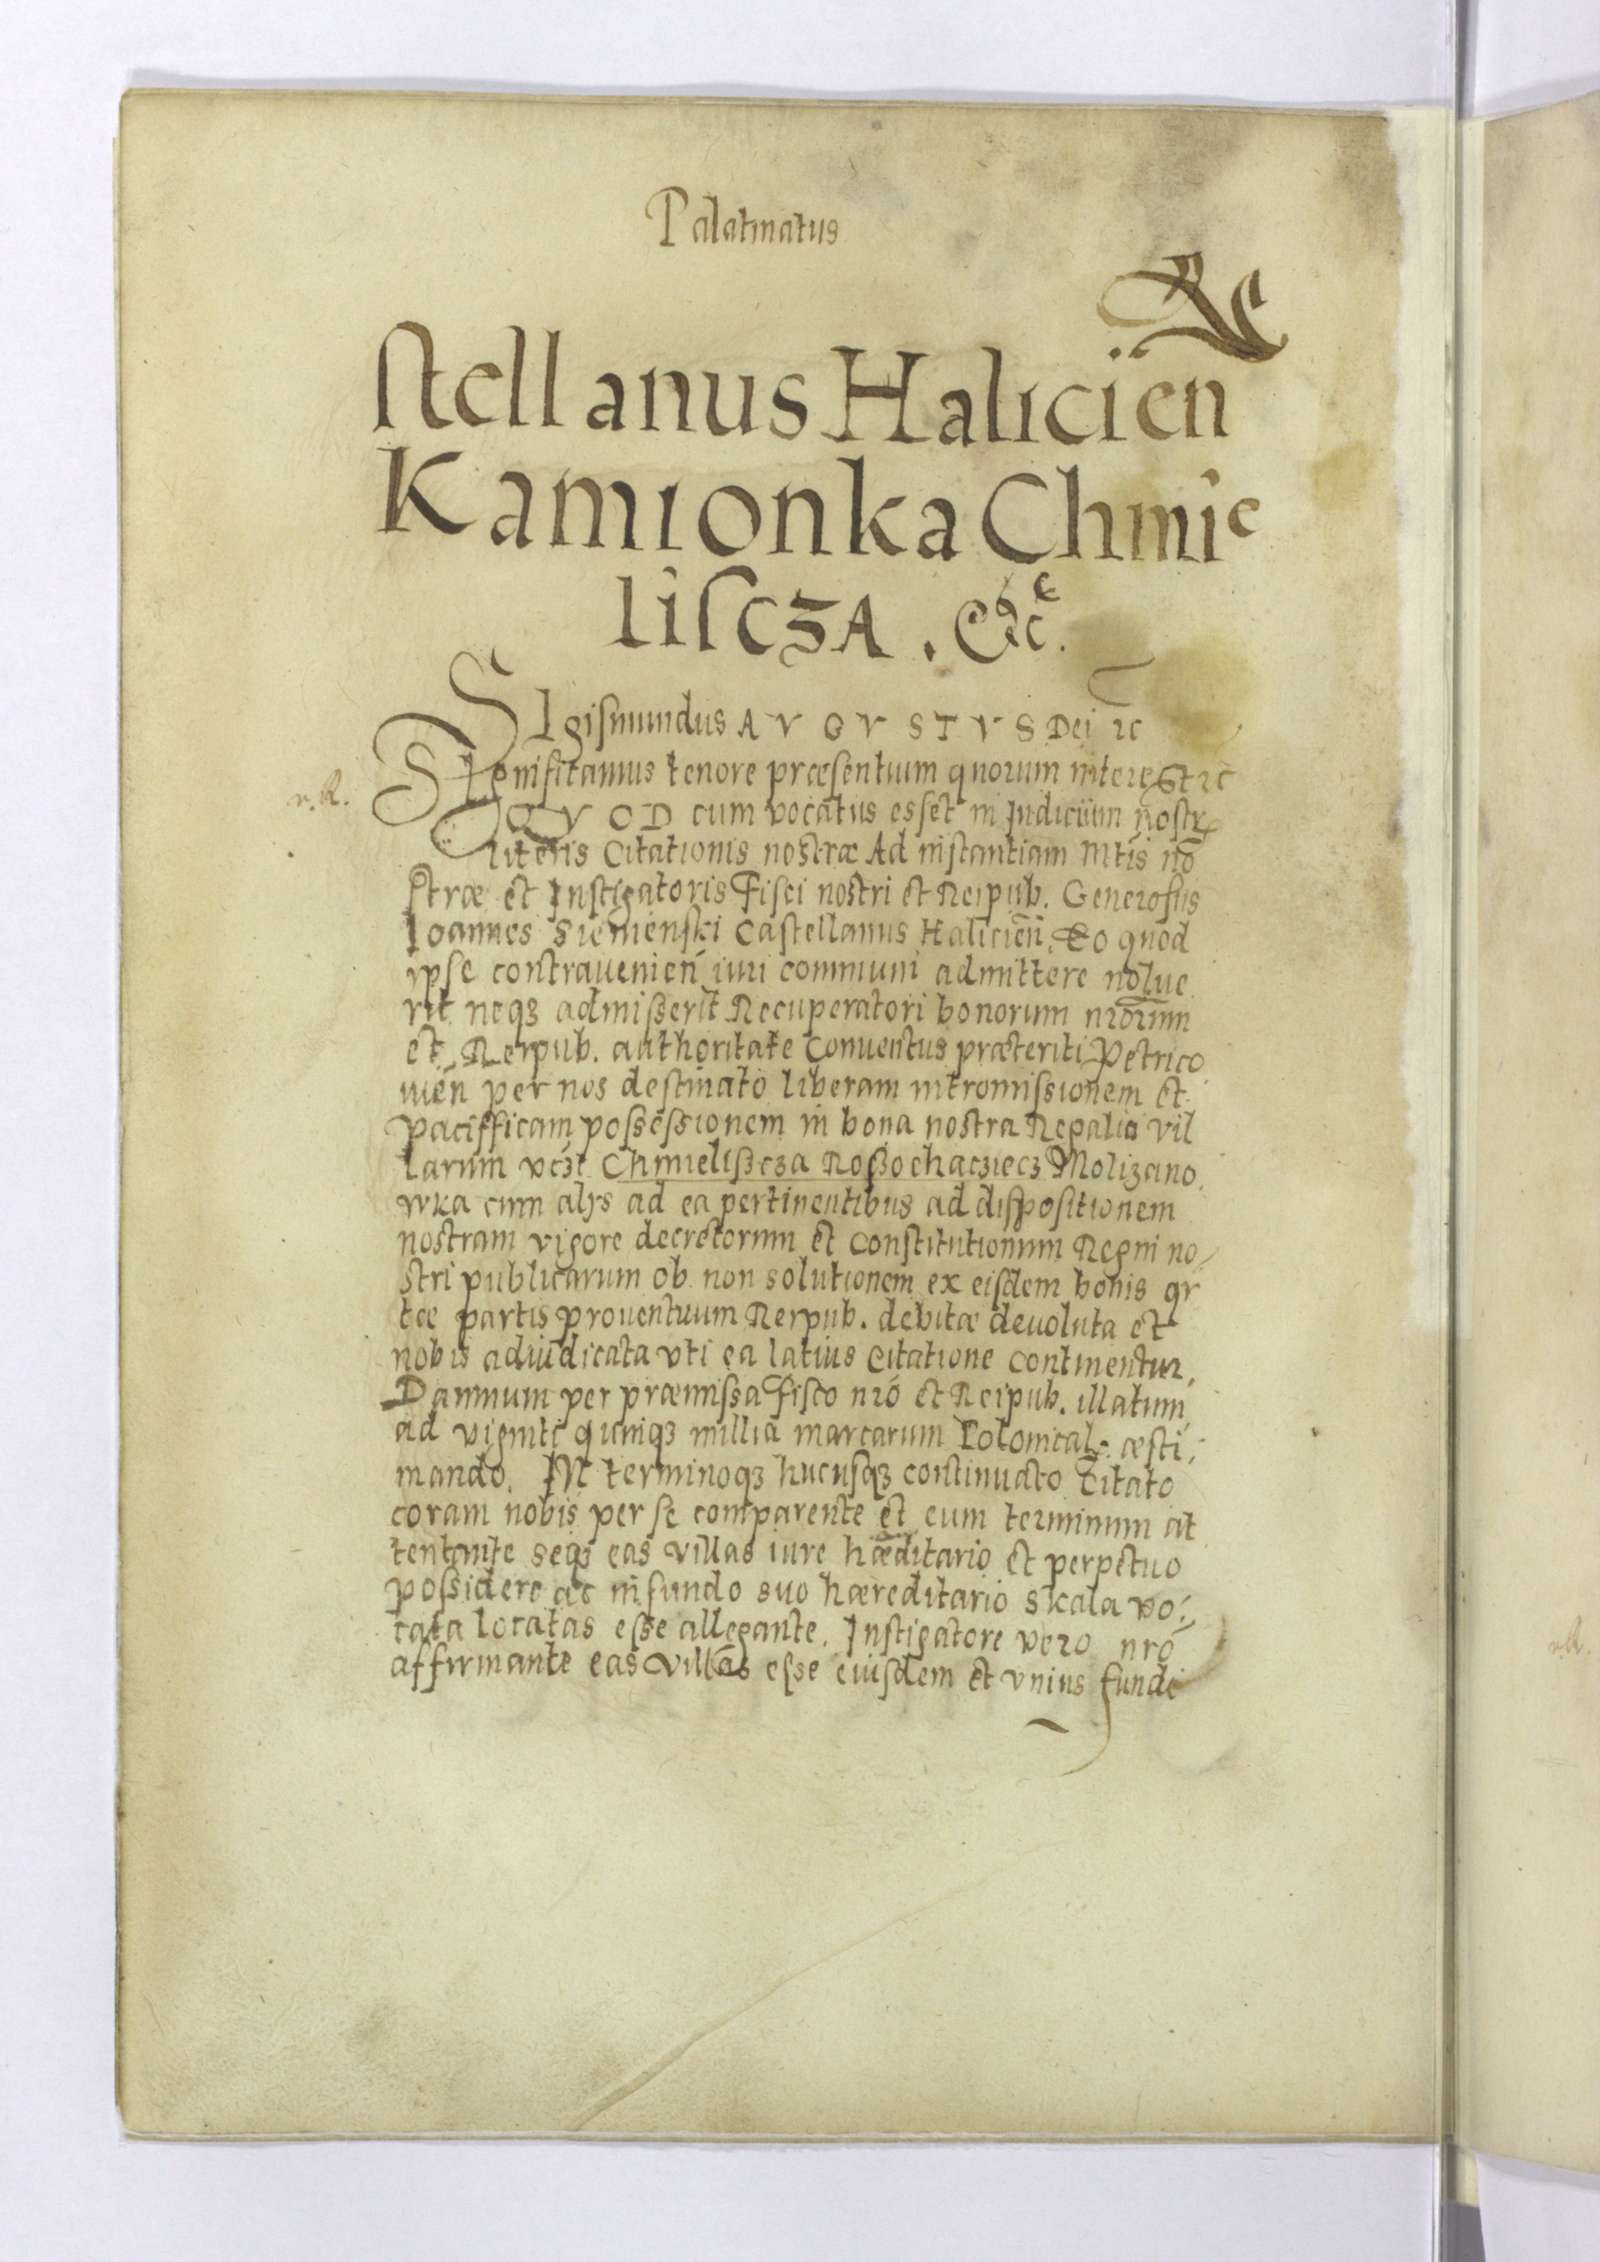 Palatinatus
stellanus Halicien̄
Kamionka Chmie
liscza . Etc.
SIgismundus AVGVSTVS Dei ꝛc
SIgnificamus tenore præsentium quorum interest ꝛc
v. R.
QVOD cum vocatus esset in Iudicium nostrꝝ
literis Citationis nostræ Ad instantiam Mtis no
stræ et Instigatoris Fisci nostri et Reipub. Generosus
Ioannes Siemienski Castellanus Halicien̄. Eo quod
ipse contravenien̄ iuri communi admittere nolue
rit neqꝫ admisserit Recuperatori bonorum nr̄orum
et Reipub. authoritate Conuentus præteriti Petrico
uien̄ per nos destinato liberam intromissionem et
pacifficam possessionem in bona nostra Regalia vil
larum vcꝫt Chmielisscza Rossochacziecz Molizano
wka cum alys ad ea pertinentibus ad dispositionem
nostram vigore decretorum et Constitutionum Regni no
stri publicarum ob non solutionem ex eisdem bonis qr
tæ partis prouentuum Reipub. debitæ deuoluta et
nobis adiudicata vti ea latius Citatione continentur,
Damnum per præmissa fisco nr̄o et Reipub. illatum
ad viginti quinqꝫ millia marcarum Polonical: æsti:
mando. IN terminoqꝫ hucusqꝫ continuato Citato
coram nobis per se comparente et eum terminum at
tentante seqꝫ eas villas iure hæditario et perpetuo
possidere ac in fundo suo hæreditario Skala vo:
cata locatas esse allegante. Instigatore vero nr̄o
affirmante eas villas esse eiusdem et vnius fundi